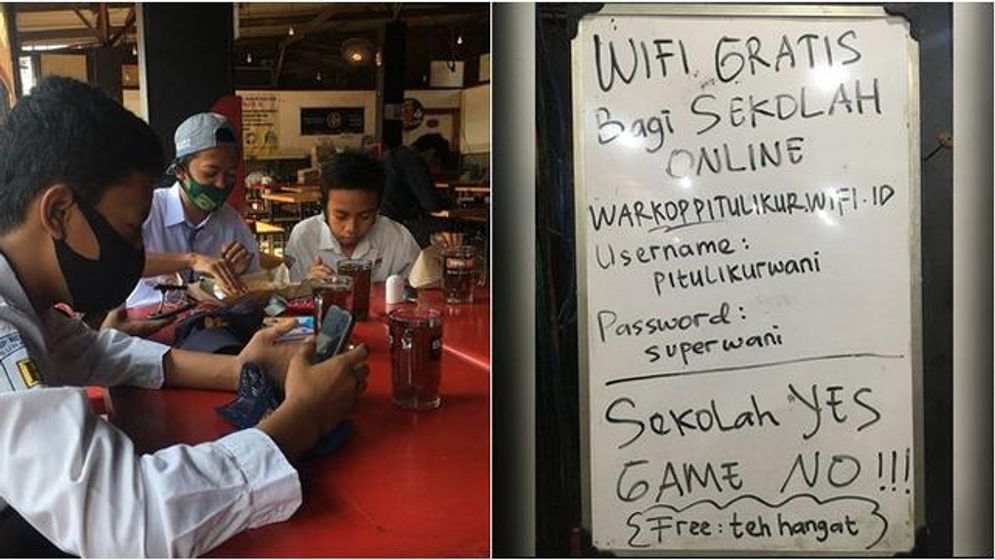 WIFI GRATIS
Bagi SEKOLAH
ONLINE
WARKOPPITULIKUR.WIFI.ID
Username:
pitulikurwani
Password:
superwani
Sekolah YES
GAME NO!!!
{Free: teh hangat}